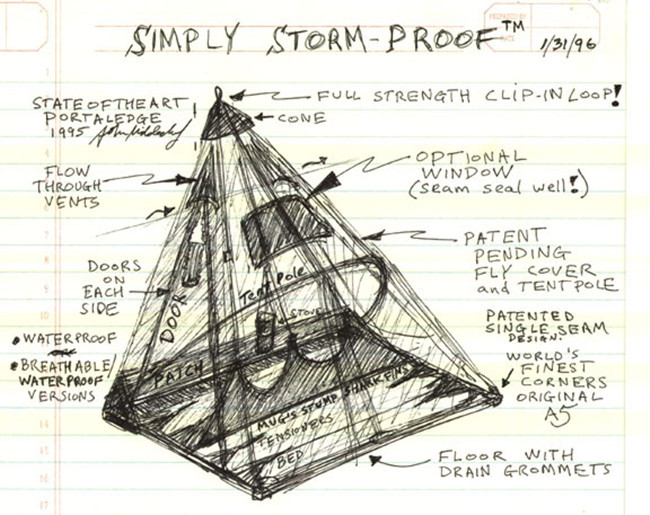 SIMPLY STORM-PROOF™
1/31/96
STATE OF THE ART
PORTALEDGE
1995
FULL STRENGTH CLIP-IN LOOP!
CONE
FLOW
THROUGH
VENTS
OPTIONAL
WINDOW
(seam seal well!)
PATENT
PENDING
FLY COVER
and TENTPOLE
DOORS
ON
EACH
SIDE
DOOR
Tent Pole
STOVE
PATENTED
SINGLE SEAM
DESIGN.
• WATERPROOF
• BREATHABLE/
WATERPROOF
VERSIONS
PATCH
WORLD'S
FINEST
CORNERS
ORIGINAL
A5
MUG'S STUMP SHARK FINS
TENSIONERS
BED
FLOOR WITH
DRAIN GROMMETS
1
4
6
7
8
9
10
11
12
14
15
16
17